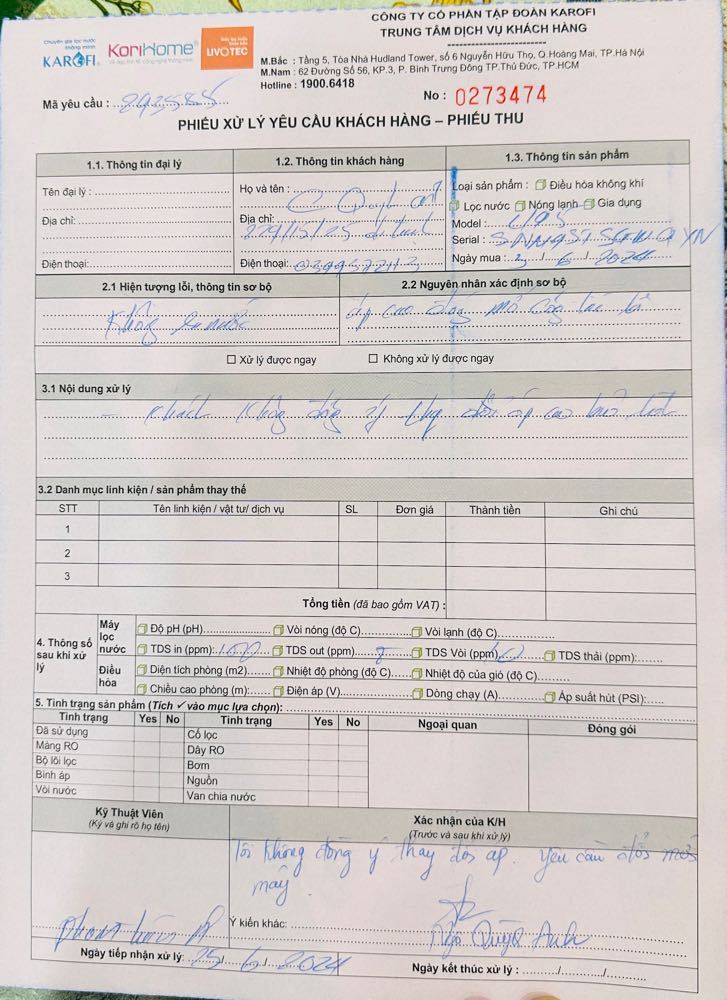 CÔNG TY CỔ PHẦN TẬP ĐOÀN KAROFI
TRUNG TÂM DỊCH VỤ KHÁCH HÀNG
Chuyên gia lọc nước thông minh
KAROFI
KoriHome
LIVOTEC
M.Bắc : Tầng 5, Tòa Nhà Hudland Tower, số 6 Nguyễn Hữu Thọ, Q.Hoàng Mai, TP.Hà Nội
M.Nam : 62 Đường Số 56, KP.3, P. Bình Trưng Đông TP.Thủ Đức, TP.HCM
Hotline : 1900.6418
Mã yêu cầu :
No : 0273474
PHIẾU XỬ LÝ YÊU CẦU KHÁCH HÀNG – PHIẾU THU
1.1. Thông tin đại lý
Tên đại lý :
Địa chỉ:
Điện thoại:
1.2. Thông tin khách hàng
Họ và tên : C Quỳnh anh
Địa chỉ:
Điện thoại:
1.3. Thông tin sản phẩm
Loại sản phẩm : Điều hòa không khí
Lọc nước Nóng lạnh Gia dụng
Model :
Serial :
Ngày mua : / 6 / 2024
2.1 Hiện tượng lỗi, thông tin sơ bộ
Không nước
2.2 Nguyên nhân xác định sơ bộ
áp cao đóng mở công tắc
Xử lý được ngay Không xử lý được ngay
3.1 Nội dung xử lý
– Khách không đồng ý thay đổi áp cao
3.2 Danh mục linh kiện / sản phẩm thay thế
STT Tên linh kiện / vật tư/ dịch vụ SL Đơn giá Thành tiền Ghi chú
1
2
3
Tổng tiền (đã bao gồm VAT) :
4. Thông số sau khi xử lý
Máy lọc nước
Độ pH (pH) Vòi nóng (độ C) Vòi lạnh (độ C)
TDS in (ppm): TDS out (ppm): 8 TDS Vòi (ppm) TDS thải (ppm):
Điều hòa
Diện tích phòng (m2) Nhiệt độ phòng (độ C) Nhiệt độ của gió (độ C)
Chiều cao phòng (m): Điện áp (V) Dòng chạy (A) Áp suất hút (PSI):
5. Tình trạng sản phẩm (Tích ✓ vào mục lựa chọn):
Tình trạng Yes No Tình trạng Yes No Ngoại quan Đóng gói
Đã sử dụng Cổ lọc
Màng RO Dây RO
Bộ lõi lọc Bơm
Bình áp Nguồn
Vòi nước Van chia nước
Kỹ Thuật Viên
(Ký và ghi rõ họ tên)
Xác nhận của K/H
(Trước và sau khi xử lý)
Tôi không đồng ý thay đổi áp. Yêu cầu đổi mới
máy
Ý kiến khác:
Ngô Quỳnh Anh
Ngày tiếp nhận xử lý: 25 / 6 / 2024
Ngày kết thúc xử lý : / /